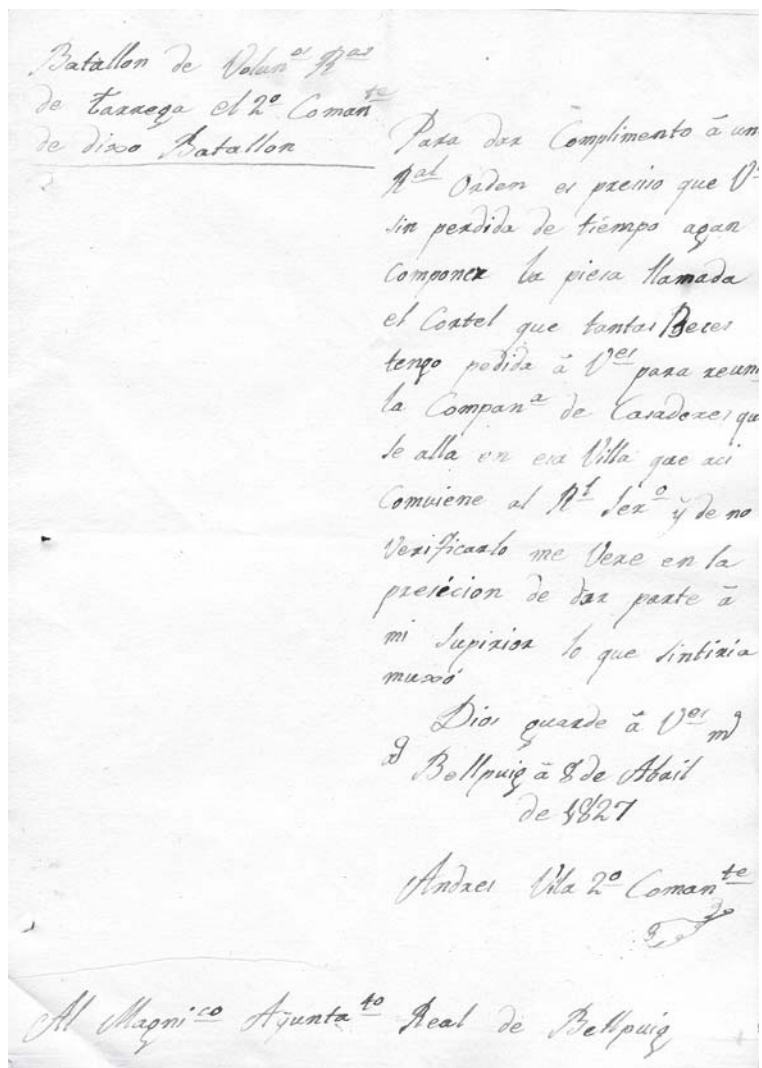 Batallon de Volun^es R^as
de tarrega el 2º Coman^te
de dixo Batallon
Para dar Complimento â un
R^al Orden es presiso que V^s
sin perdida de tiempo agan
Componer la piesa llamada
el Cortel que tantas Beces
tengo pedida â V^es para reuni
la Compan^a de Casadores qu
se alla en esa Villa que aci
Comviene al R^l Ser^o y de no
Verificarlo me Vere en la
presécion de dar parte â
mi Supirior lo que sintiria
muxo
Dios guarde â V^es m^s
a^s Bellpuig â 8 de Abril
de 1827
Andres Vila 2º Coman^te
Al Magni^co Ayunta^to Real de Bellpuig